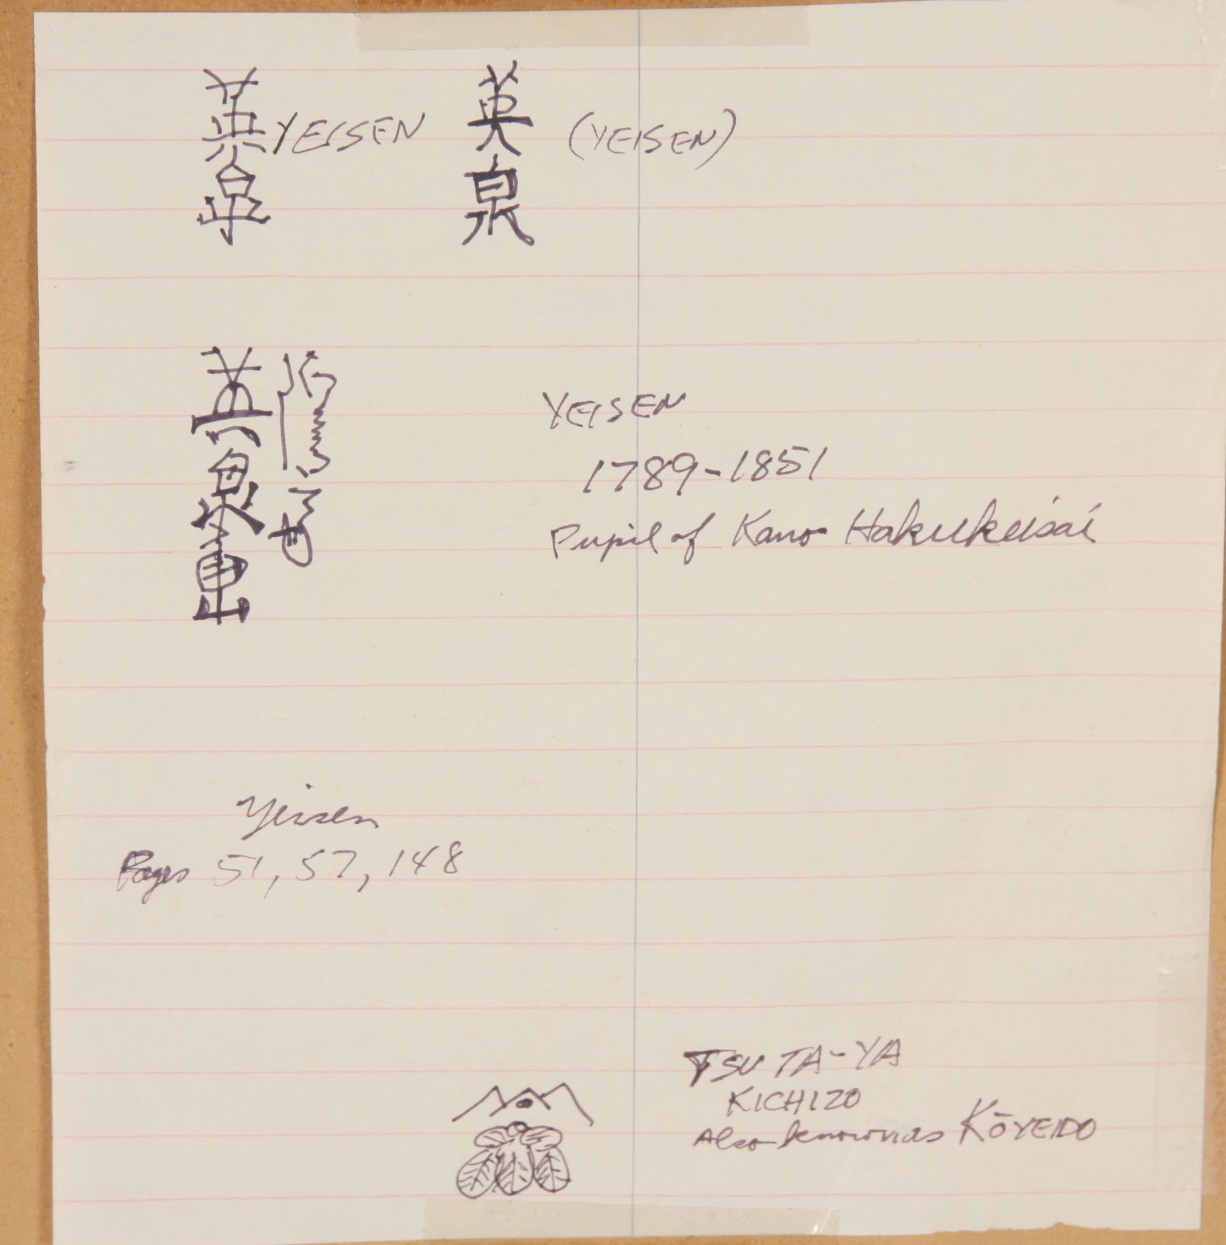 英泉 YEISEN 英泉 (YEISEN)
英泉画
YEISEN
1789-1851
Pupil of Kano Hakukeisai
Yeisen
Pages 51, 57, 148
TSUTA-YA
KICHIZO
Also known as KŌYEIDO